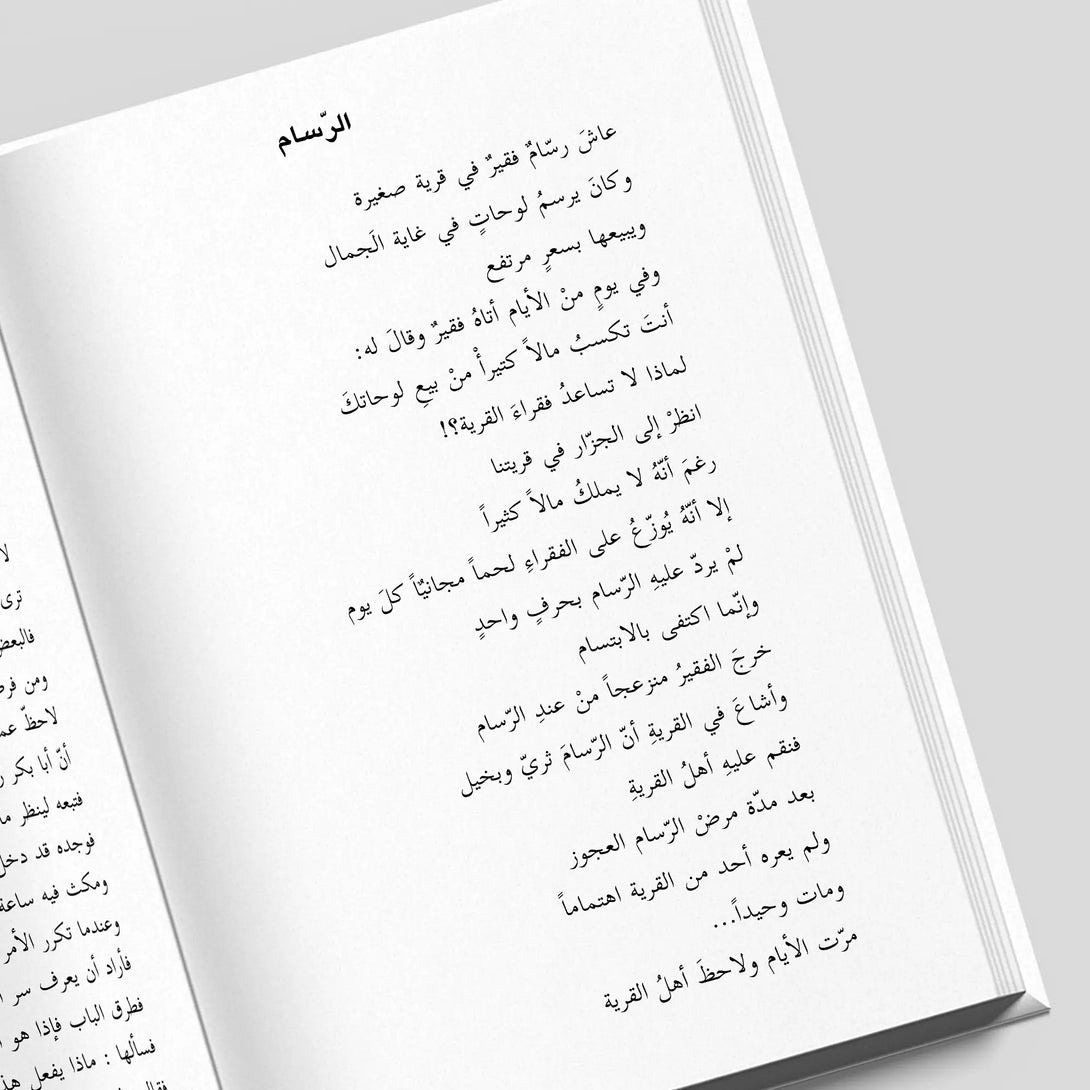 الرّسام
عاشَ رسّامٌ فقيرٌ في قرية صغيرة
وكانَ يرسمُ لوحاتٍ في غاية الَجمال
ويبيعها بسعرٍ مرتفع
وفي يومٍ منْ الأيام أتاهُ فقيرٌ وقالَ له:
أنتَ تكسبُ مالاً كتيرأْ منْ بيعِ لوحاتكَ
لماذا لا تساعدُ فقراءَ القرية؟!
انظرْ إلى الجزّار في قريتنا
رغمَ أنّهُ لا يملكُ مالاً كثيراً
إلا أنّهُ يُوزّعُ على الفقراءِ لحماً مجانيّاً كلَ يوم
لمْ يردّ عليهِ الرّسام بحرفٍ واحدٍ
وإنّما اكتفى بالابتسام
خرجَ الفقيرُ منزعجاً منْ عندِ الرّسام
وأشاعَ في القريةِ أنّ الرّسامَ ثريّ وبخيل
فنقم عليهِ أهلُ القريةِ
بعد مدّة مرضْ الرّسام العجوز
ولم يعره أحد من القرية اهتماماً
ومات وحيداً...
مرّت الأيام ولاحظَ أهلُ القرية
لا
ترى
فالبعض
ومن
لاحظّ
أنّ أبا بكر
فتبعه لينظر
فوجده قد دخل
ومكث فيه ساعة
وعندما تكرر الأمر
فأراد أن يعرف سر
فطرق الباب فإذا هو
فسألها : ماذا يفعل